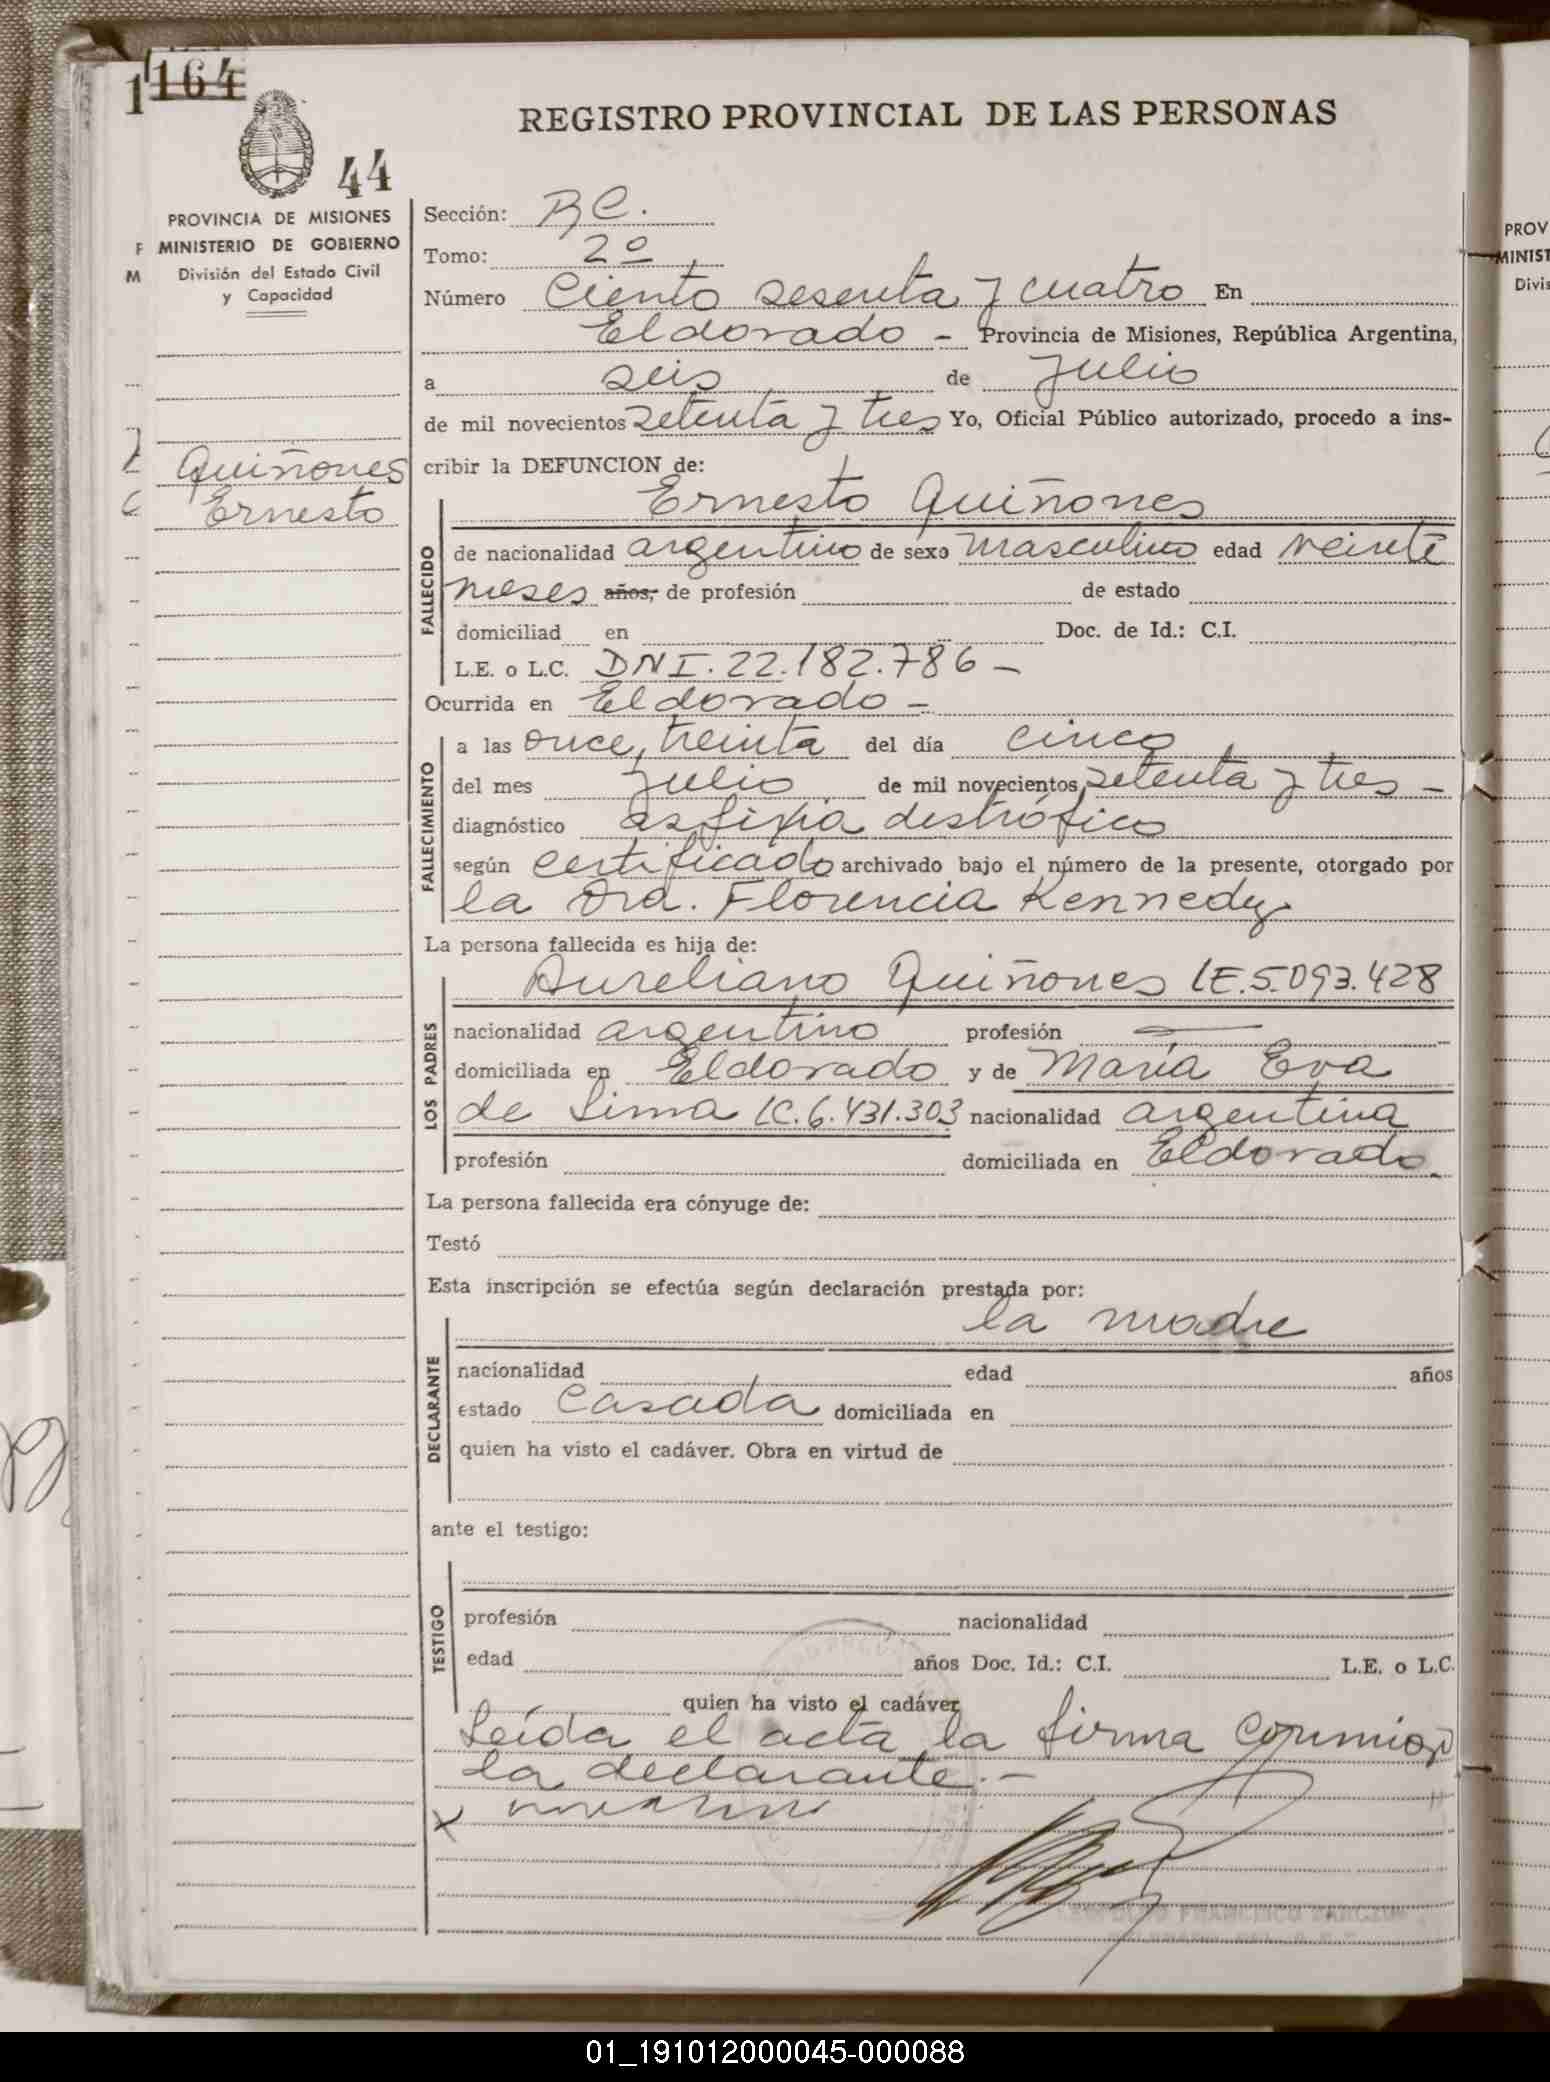 1164
44
REGISTRO PROVINCIAL DE LAS PERSONAS
PROVINCIA DE MISIONES
MINISTERIO DE GOBIERNO
División del Estado Civil
y Capacidad
Quiñones
Ernesto
Sección: RC.
Tomo: 2º
Número Ciento sesenta y cuatro En
Eldorado - Provincia de Misiones, República Argentina,
a seis de Julio
de mil novecientos setenta y tres Yo, Oficial Público autorizado, procedo a ins-
cribir la DEFUNCION de:
Ernesto Quiñones
FALLECIDO
de nacionalidad argentino de sexo masculino edad veinte
meses años, de profesión de estado
domiciliad en Doc. de Id.: C.I.
L.E. o L.C. DNI. 22.182.786 -
Ocurrida en Eldorado -
FALLECIMIENTO
a las once, treinta del día cinco
del mes Julio de mil novecientos setenta y tres -
diagnóstico asfixia distrófico
según certificado archivado bajo el número de la presente, otorgado por
la Dra. Florencia Kennedy
La persona fallecida es hija de:
LOS PADRES
Aureliano Quiñones LE. 5.093.428
nacionalidad argentino profesión
domiciliada en Eldorado y de María Eva
de Lima LC. 6.431.303 nacionalidad argentina
profesión domiciliada en Eldorado.
La persona fallecida era cónyuge de:
Testó
Esta inscripción se efectúa según declaración prestada por:
DECLARANTE
la madre
nacionalidad edad años
estado casada domiciliada en
quien ha visto el cadáver. Obra en virtud de
ante el testigo:
TESTIGO
profesión nacionalidad
edad años Doc. Id.: C.I. L.E. o L.C.
quien ha visto el cadáver
Leída el acta la firma conmigo
la declarante. -
x
PROV
MINIST
Divis
01_191012000045-000088